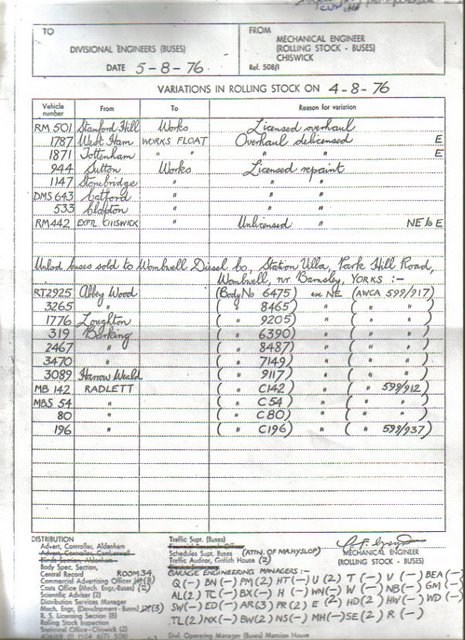 TO
FROM
DIVISIONAL ENGINEERS (BUSES)
MECHANICAL ENGINEER
(ROLLING STOCK - BUSES)
CHISWICK
DATE 5-8-76
Ref. 508/1
VARIATIONS IN ROLLING STOCK ON 4-8-76
Vehicle number From To Reason for variation
RM 501 Stamford Hill Works Licensed overhaul
1787 West Ham WORKS FLOAT Overhaul delicensed E
1871 Tottenham " " " " E
944 Sutton Works Licensed repaint
1147 Stonebridge " " "
DMS 643 Catford " " "
533 Clapton " " "
RM 442 EXPTL CHISWICK " Unlicensed " NE to E
Unlsd buses sold to Wombwell Diesel Co, Station Villa, Park Hill Road,
Wombwell, nr Barnsley, YORKS :-
RT2925 Abbey Wood (Body No 6475) ex NE (AWCA 599/917)
3265 " ( " 8465) " ( " " )
1776 Loughton ( " 9205) " ( " " )
319 Barking ( " 6390) " ( " " )
2467 " ( " 8487) " ( " " )
3470 " ( " 7149) " ( " " )
3089 Harrow Weald ( " 9117) " ( " " )
MB 142 RADLETT ( " C142) " ( " 599/912)
MBS 54 " ( " C54) " ( " " )
80 " ( " C80) " ( " " )
196 " ( " C196) " ( " 599/937)
DISTRIBUTION
Advert. Controller, Aldenham
Advert. Controller, Camberwell
Body Spec. Section,
Central Record ROOM 34
Commercial Advertising Officer
Costs Office (Mech. Engr.-Buses) (2)
Scientific Adviser (2)
Distribution Services Manager
Mech. Engr. (Development - Buses) (3)
R. S. Licensing Section (8)
Rolling Stock Inspection
Traffic Supt. (Buses)
Schedules Supt. Buses (ATTN. OF MR HYSLOP)
Traffic Auditor, Griffith House (2)
MECHANICAL ENGINEER
(ROLLING STOCK - BUSES)
GARAGE ENGINEERING MANAGERS :-
Q (-) BN (-) PM (2) HT (-) U (2) T (-) V (-) BEA (-)
AL (2) TC (-) BX (-) H (-) WN (-) W (-) NB (-) GM (-)
SW (-) ED (-) AR (3) PR (2) E (2) HD (2) HW (-) WD (-)
TL (2) NX (-) BW (2) NS (-) MH (-) SE (2) R (-)
Divl. Operating Manager (Buses) Mansion House